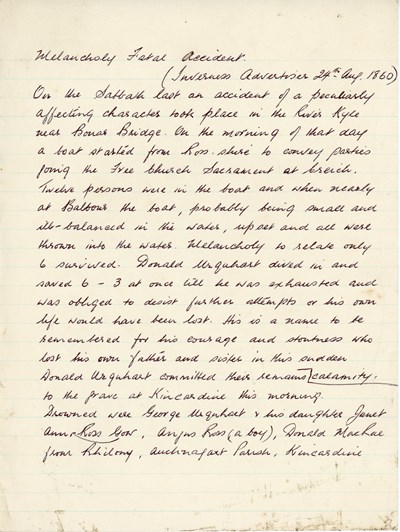 Melancholy Fatal Accident.
(Inverness Advertiser 24th Aug. 1860)
On the Sabbath last an accident of a peculiarly
affecting character took place in the River Kyle
near Bonar Bridge. On the morning of that day
a boat started from Ross-shire to convey parties
going the Free Church Sacrament at Creich.
Twelve persons were in the boat and when nearly
at Balbour the boat, probably being small and
ill-balanced in the water, upset and all were
thrown into the water. Melancholy to relate only
6 survived. Donald Urquhart dived in and
saved 6 - 3 at once till he was exhausted and
was obliged to desist further attempts or his own
life would have been lost. His is a name to be
remembered for his courage and stoutness who
lost his own father and sister in this sudden
Donald Urquhart committed their remains calamity.
to the grave at Kincardine this morning.
Drowned were George Urquhart & his daughter Janet
Ross Gow, Angus Ross (a boy), Donald MacRae
from Auchnagart Parish, Kincardine